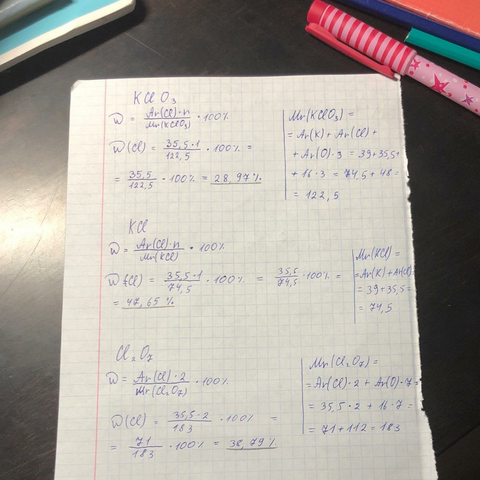 KClO₃
ω = Ar(Cl)·n / Mr(KClO₃) · 100%
ω(Cl) = 35,5·1 / 122,5 · 100% =
= 35,5 / 122,5 · 100% = 28,97%
Mr(KClO₃) =
= Ar(K) + Ar(Cl) +
+ Ar(O)·3 = 39+35,5+
+ 16·3 = 74,5 + 48 =
= 122,5
KCl
ω = Ar(Cl)·n / Mr(KCl) · 100%
ω(Cl) = 35,5·1 / 74,5 · 100% = 35,5 / 74,5 · 100% =
= 47,65%
Mr(KCl) =
= Ar(K) + Ar(Cl)
= 39 + 35,5 =
= 74,5
Cl₂O₇
ω = Ar(Cl)·2 / Mr(Cl₂O₇) · 100%
ω(Cl) = 35,5·2 / 183 · 100% =
= 71 / 183 · 100% = 38,79%
Mr(Cl₂O₇) =
= Ar(Cl)·2 + Ar(O)·7 =
= 35,5·2 + 16·7 =
= 71 + 112 = 183